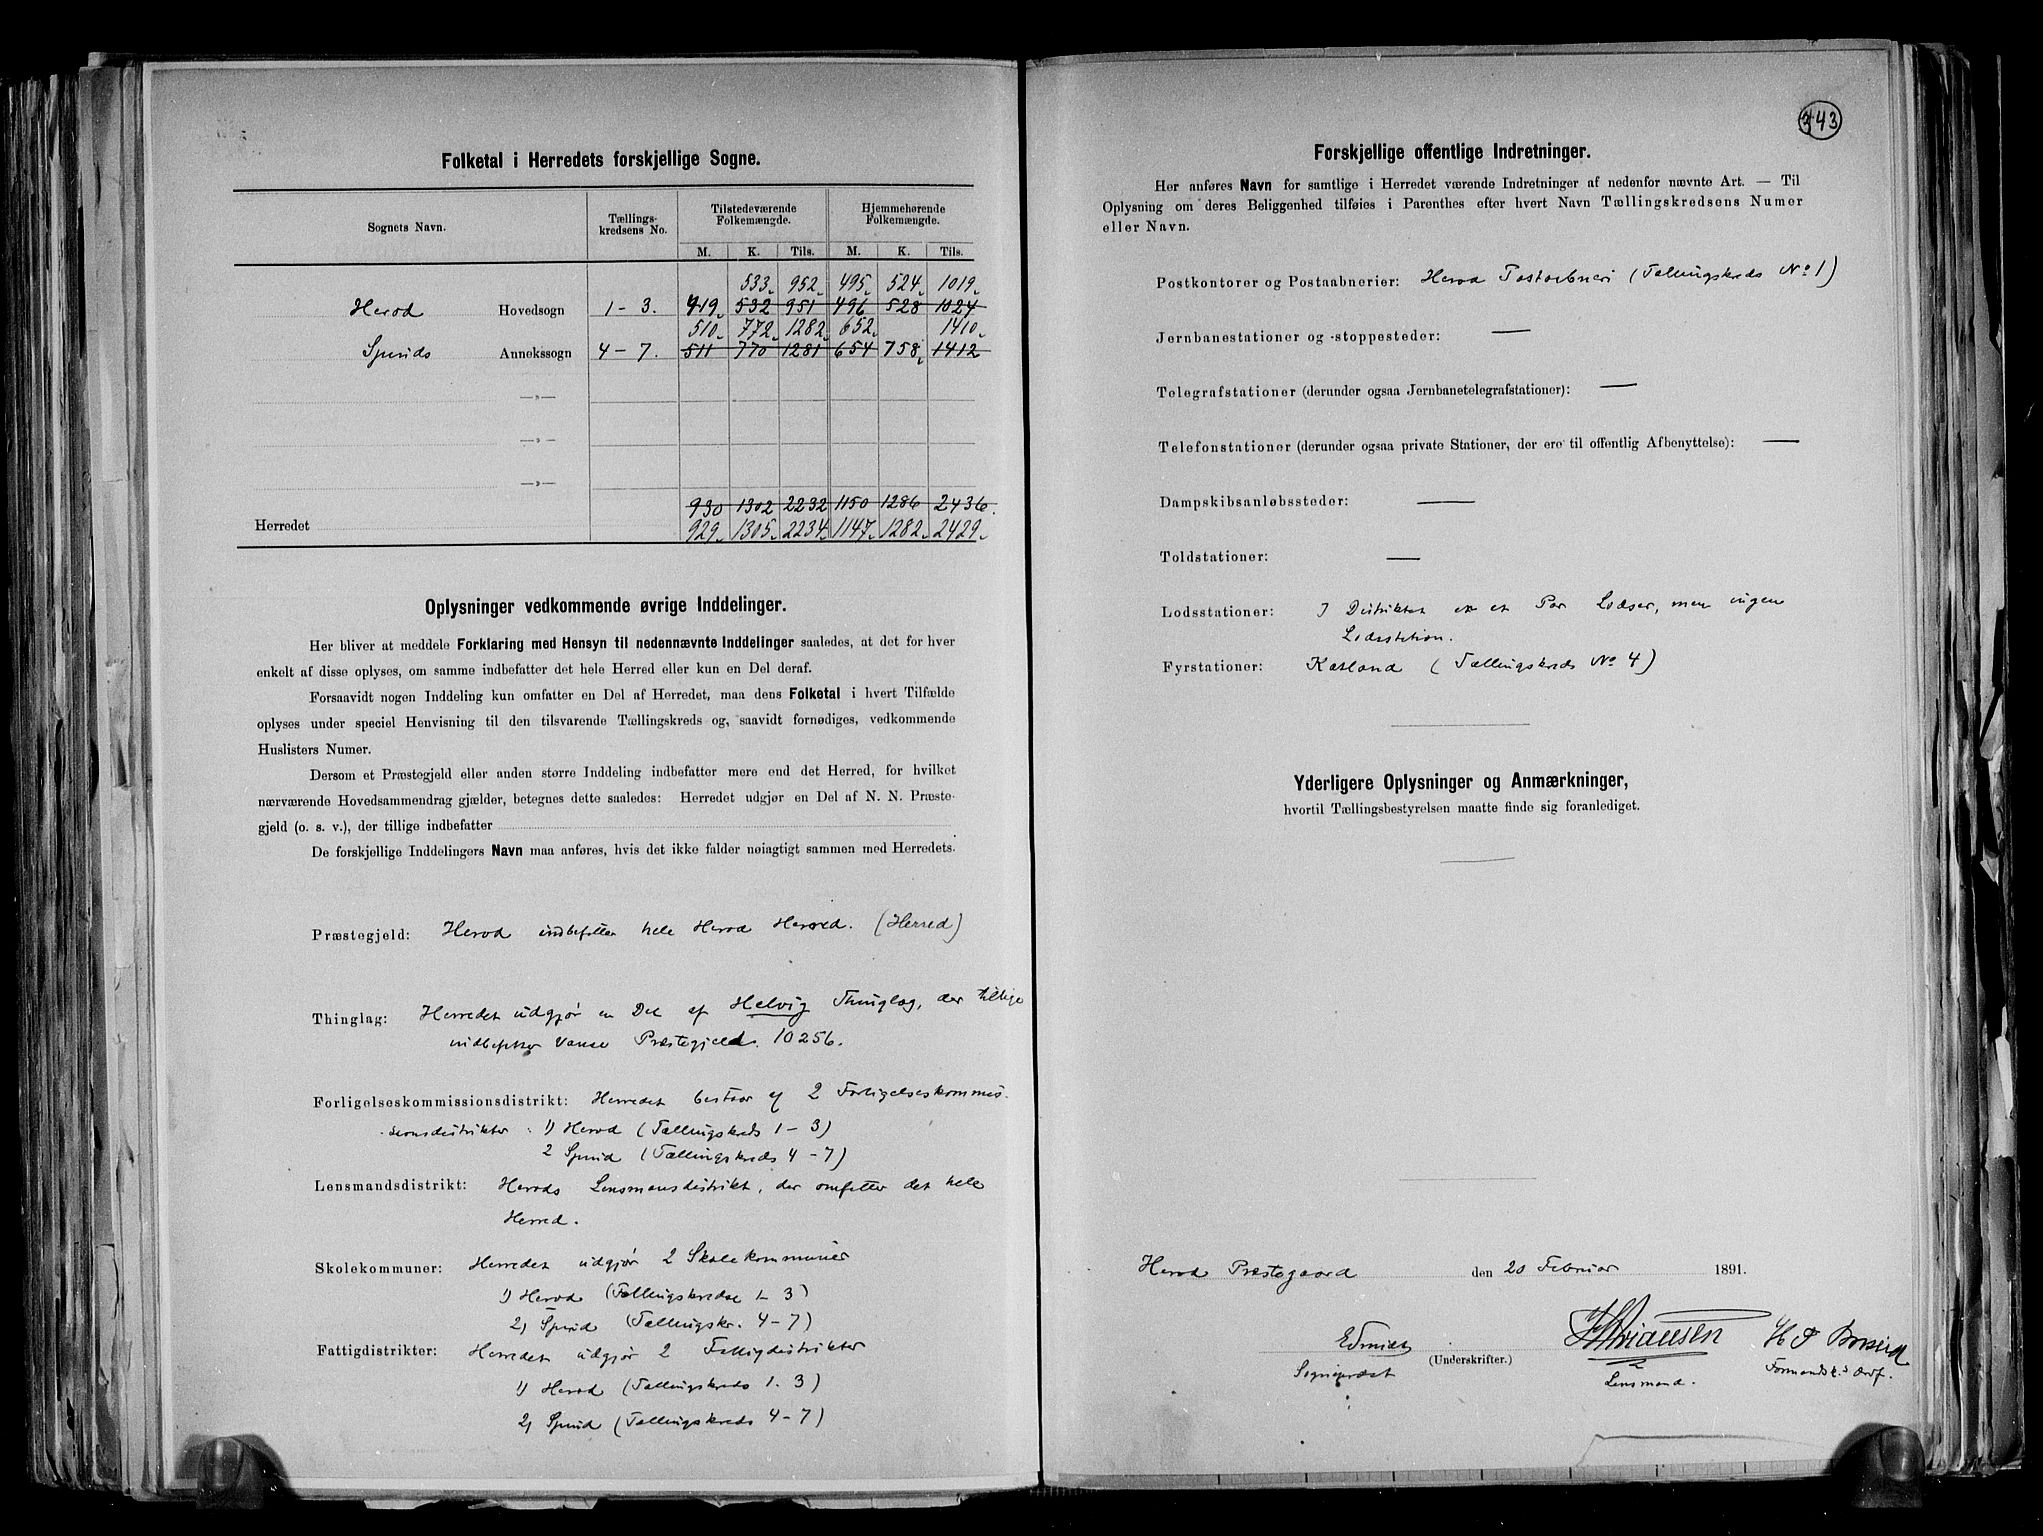 Folketal i Herredets forskjellige Sogne.
Sognets Navn. Tællings-kredsens No. Tilstedeværende Folkemængde. Hjemmehørende Folkemængde.
M. K. Tils. M. K. Tils.
533 952 495 524 1019
Herod Hovedsogn 1 - 3. 419 532 951 496 528 1024
510 772 1282 652 1410
Spinds Annekssogn 4 - 7. 511 770 1281 654 758 1412
—»—
—»—
—»—
930 1302 2232 1150 1286 2436.
Herredet 929 1305 2234 1147 1282 2429
Oplysninger vedkommende øvrige Inddelinger.
Her bliver at meddele Forklaring med Hensyn til nedennævnte Inddelinger saaledes, at det for hver
enkelt af disse oplyses, om samme indbefatter det hele Herred eller kun en Del deraf.
Forsaavidt nogen Inddeling kun omfatter en Del af Herredet, maa dens Folketal i hvert Tilfælde
oplyses under speciel Henvisning til den tilsvarende Tællingskreds og, saavidt fornødiges, vedkommende
Huslisters Numer.
Dersom et Præstegjeld eller anden større Inddeling indbefatter mere end det Herred, for hvilket
nærværende Hovedsammendrag gjælder, betegnes dette saaledes: Herredet udgjør en Del af N. N. Præste-
gjeld (o. s. v.), der tillige indbefatter
De forskjellige Inddelingers Navn maa anføres, hvis det ikke falder nøiagtigt sammen med Herredets.
Præstegjeld: Herod indbefatter hele Herod Herred. (Herred)
Thinglag: Herredet udgjør en Del af Helvig Thinglag, der tillige
indbefatter Vanse Præstegjeld. 10256.
Forligelseskommissionsdistrikt: Herredet bestaar af 2 Forligelseskommis-
sionsdistrikter 1) Herod (Tællingskreds 1 - 3)
2 Spind (Tællingskreds 4 - 7)
Lensmandsdistrikt: Herods Lensmansdistrikt, der omfatter det hele
Herred.
Skolekommuner: Herredet udgjør 2 Skolekommuner
1) Herod (Tællingskredse 1 - 3)
2) Spind (Tællingskr. 4 - 7)
Fattigdistrikter: Herredet udgjør 2 Fattigdistrikter
1) Herod (Tællingskreds 1. 3)
2) Spind (Tællingskreds 4 - 7)
343
Forskjellige offentlige Indretninger.
Her anføres Navn for samtlige i Herredet værende Indretninger af nedenfor nævnte Art. — Til
Oplysning om deres Beliggenhed tilføies i Parenthes efter hvert Navn Tællingskredsens Numer
eller Navn.
Postkontorer og Postaabnerier: Herod Postaabneri (Tællingskreds No 1)
Jernbanestationer og -stoppesteder: —
Telegrafstationer (derunder ogsaa Jernbanetelegrafstationer): —
Telefonstationer (derunder ogsaa private Stationer, der ere til offentlig Afbenyttelse): —
Dampskibsanløbssteder: —
Toldstationer: —
Lodsstationer: I Distriktet er et Par Lodser, men ingen
Lodsstation.
Fyrstationer: Katland (Tællingskreds No 4)
Yderligere Oplysninger og Anmærkninger,
hvortil Tællingsbestyrelsen maatte finde sig foranlediget.
Herod Præstegaard den 20 Februar 1891.
(Underskrifter.)
Sogneprest
Lensmand.